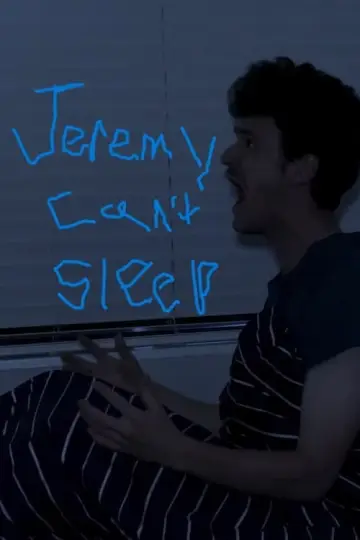 Jeremy
can't
sleep